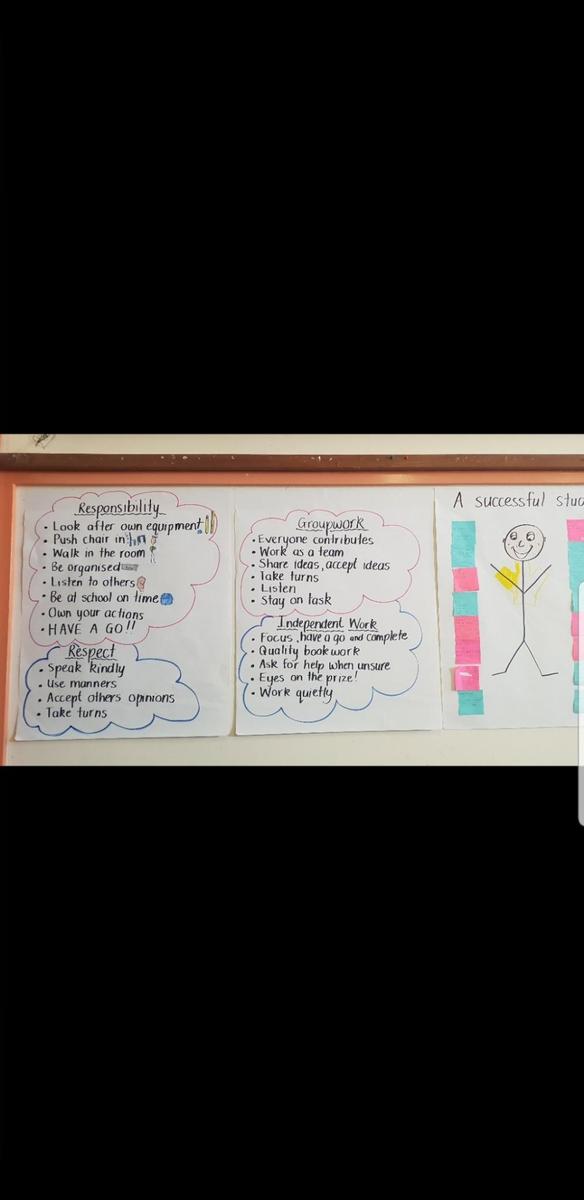 Responsibility
• Look after own equipment!
• Push chair in
• Walk in the room
• Be organised
• Listen to others
• Be at school on time
• Own your actions
• HAVE A GO!!
Respect
• Speak kindly
• Use manners
• Accept others opinions
• Take turns
Groupwork
• Everyone contributes
• Work as a team
• Share ideas, accept ideas
• Take turns
• Listen
• Stay on task
Independent Work
• Focus, have a go and complete
• Quality book work
• Ask for help when unsure
• Eyes on the prize!
• Work quietly
A successful stud